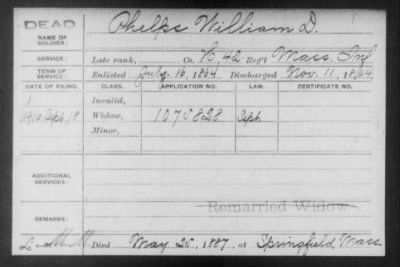 DEAD
NAME OF SOLDIER: Phelps William D.
SERVICE: Late rank, Co. K, 42 Reg't Mass. Inf
TERM OF SERVICE: Enlisted July 16, 1864 Discharged Nov. 11, 1864
DATE OF FILING. CLASS. APPLICATION NO. LAW. CERTIFICATE NO.
Invalid,
1916 Sept 18 Widow, 1075828 Sept
Minor,
ADDITIONAL SERVICES:
Remarried Widow
REMARKS:
Died May 25, 1887, at Springfield Mass